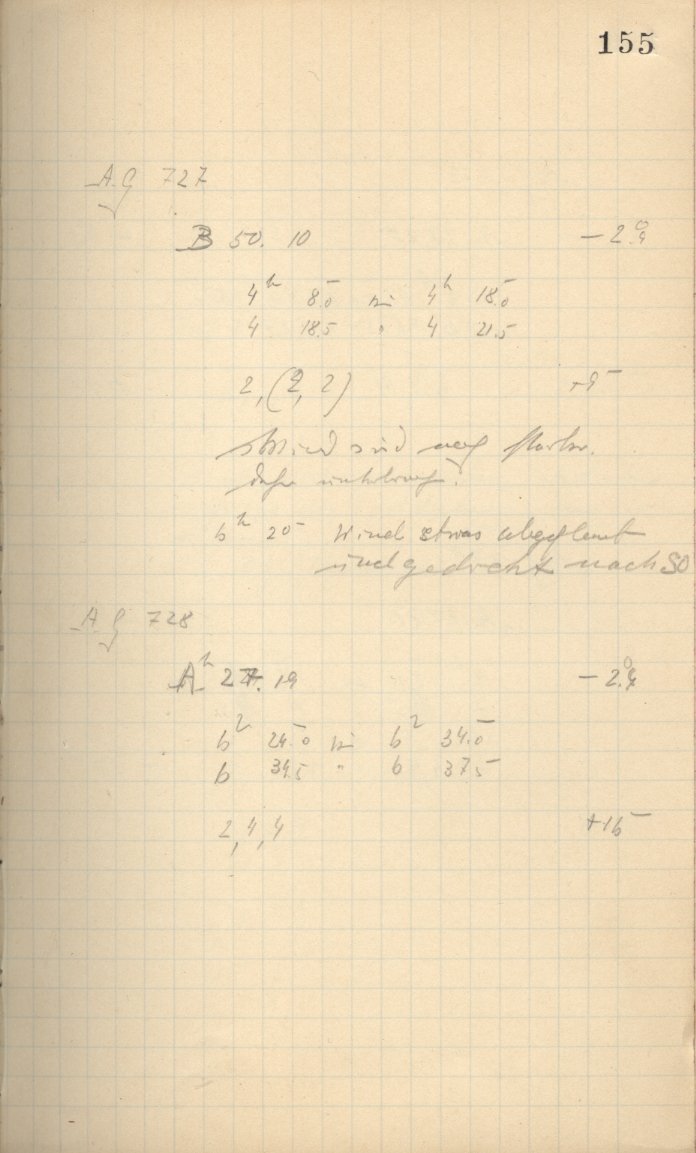 155
A.G 727
B 50. 10 −2.°9
4h 8.0 bis 4h 18.0
4 18.5 " 4 21.5
2, (2, 2) +9
Wind sind stärker.
daher
6h 20 Wind etwas abgeflaut
und gedreht nach SO
A G 728
A 27. 19 −2.°9
6h 24.0 bis 6h 34.0
6 34.5 " 6 37.5
2, 4, 4 +16